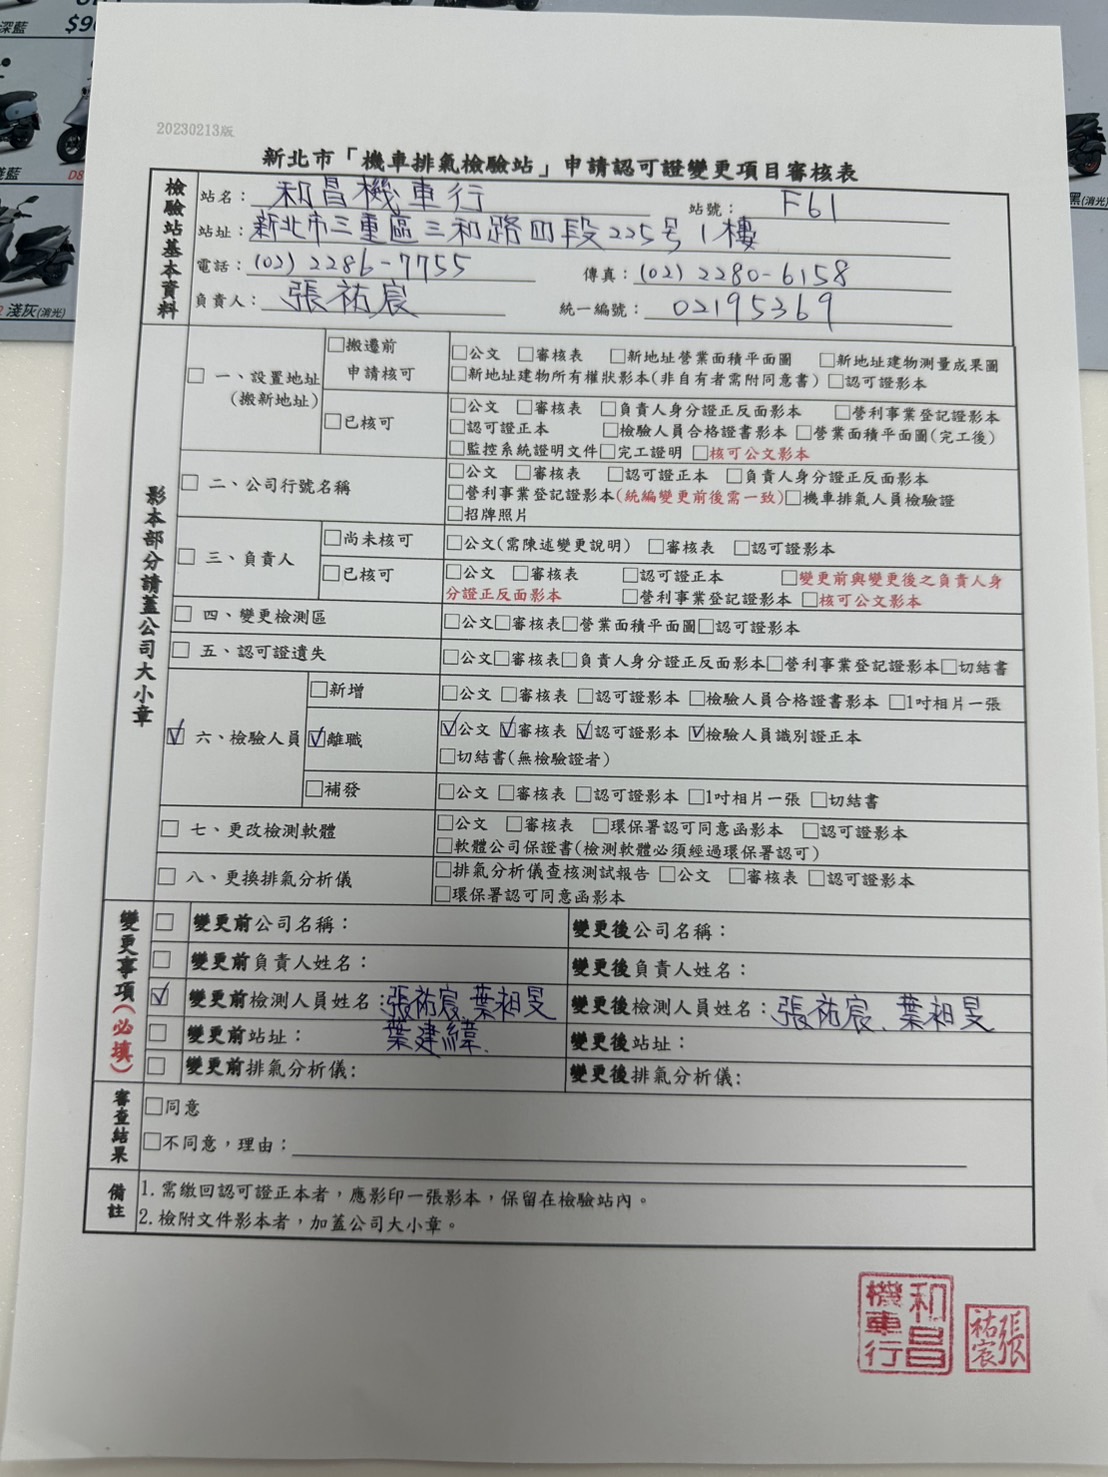 深藍
$9
淺藍
D8
淺灰(消光)
黑(消光)
20230213版
新北市「機車排氣檢驗站」申請認可證變更項目審核表
檢驗站基本資料
站名：和昌機車行 站號：F61
站址：新北市三重區三和路四段225号1樓
電話：(02)2286-7755 傳真：(02)2280-6158
負責人：張祐宸 統一編號：02195369
影本部分請蓋公司大小章
□一、設置地址(搬新地址)
□搬遷前申請核可
□公文 □審核表 □新地址營業面積平面圖 □新地址建物測量成果圖
□新地址建物所有權狀影本(非自有者需附同意書) □認可證影本
□已核可
□公文 □審核表 □負責人身分證正反面影本 □營利事業登記證影本
□認可證正本 □檢驗人員合格證書影本 □營業面積平面圖(完工後)
□監控系統證明文件□完工證明 □核可公文影本
□二、公司行號名稱
□公文 □審核表 □認可證正本 □負責人身分證正反面影本
□營利事業登記證影本(統編變更前後需一致)□機車排氣人員檢驗證
□招牌照片
□三、負責人
□尚未核可
□公文(需陳述變更說明) □審核表 □認可證影本
□已核可
□公文 □審核表 □認可證正本 □變更前與變更後之負責人身
分證正反面影本 □營利事業登記證影本 □核可公文影本
□四、變更檢測區
□公文□審核表□營業面積平面圖□認可證影本
□五、認可證遺失
□公文□審核表□負責人身分證正反面影本□營利事業登記證影本□切結書
☑六、檢驗人員
□新增
□公文 □審核表 □認可證影本 □檢驗人員合格證書影本 □1吋相片一張
☑離職
☑公文 ☑審核表 ☑認可證影本 ☑檢驗人員識別證正本
□切結書(無檢驗證者)
□補發
□公文 □審核表 □認可證影本 □1吋相片一張 □切結書
□七、更改檢測軟體
□公文 □審核表 □環保署認可同意函影本 □認可證影本
□軟體公司保證書(檢測軟體必須經過環保署認可)
□八、更換排氣分析儀
□排氣分析儀查核測試報告 □公文 □審核表 □認可證影本
□環保署認可同意函影本
變更事項(必填)
□ 變更前公司名稱： 變更後公司名稱：
□ 變更前負責人姓名： 變更後負責人姓名：
☑ 變更前檢測人員姓名：張祐宸、葉祖旻 變更後檢測人員姓名：張祐宸、葉祖旻
葉建緯、
□ 變更前站址： 變更後站址：
□ 變更前排氣分析儀： 變更後排氣分析儀：
審查結果
□同意
□不同意，理由：
備註
1.需繳回認可證正本者，應影印一張影本，保留在檢驗站內。
2.檢附文件影本者，加蓋公司大小章。
和昌機車行
張祐宸